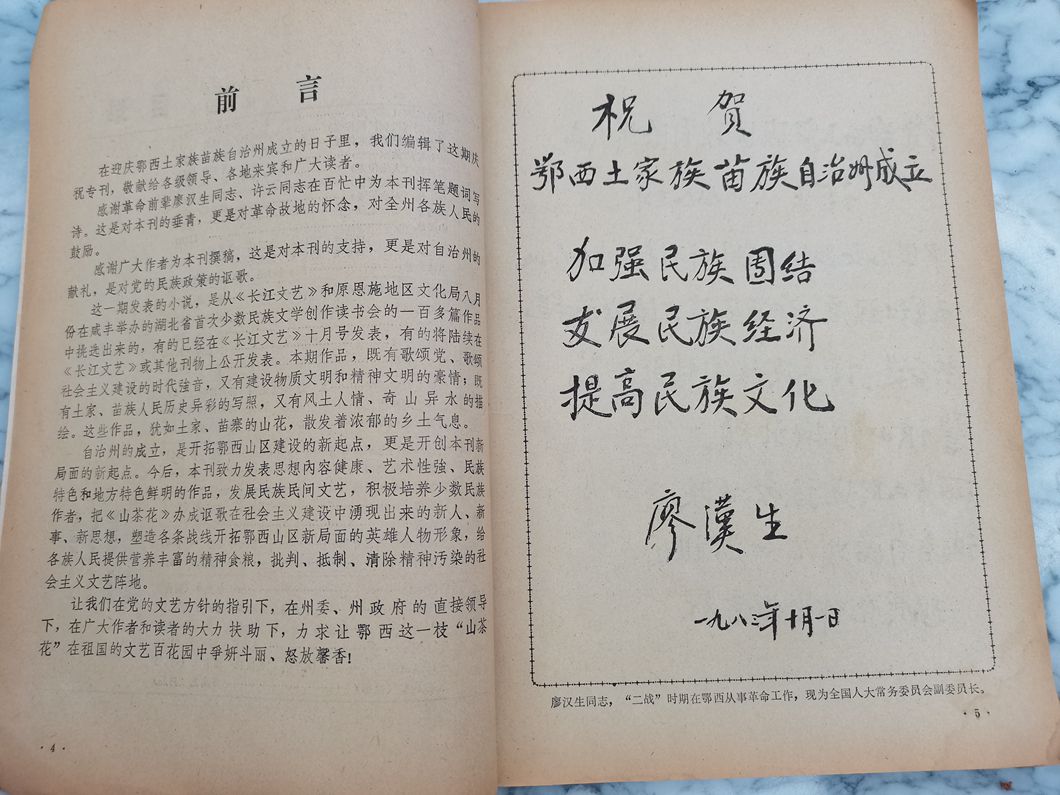 前言
在迎庆鄂西土家族苗族自治州成立的日子里，我们编辑了这期庆
祝专刊，敬献给各级领导、各地来宾和广大读者。
感谢革命前辈廖汉生同志、许云同志在百忙中为本刊挥笔题词写
诗。这是对本刊的垂青，更是对革命故地的怀念，对全州各族人民的
鼓励。
感谢广大作者为本刊撰稿，这是对本刊的支持，更是对自治州的
献礼，是对党的民族政策的讴歌。
这一期发表的小说，是从《长江文艺》和原恩施地区文化局八月
份在咸丰举办的湖北省首次少数民族文学创作读书会的一百多篇作品
中挑选出来的，有的已经在《长江文艺》十月号发表，有的将陆续在
《长江文艺》或其他刊物上公开发表。本期作品，既有歌颂党、歌颂
社会主义建设的时代强音，又有建设物质文明和精神文明的豪情；既
有土家、苗族人民历史异彩的写照，又有风土人情、奇山异水的描
绘。这些作品，犹如土家、苗寨的山花，散发着浓郁的乡土气息。
自治州的成立，是开拓鄂西山区建设的新起点，更是开创本刊新
局面的新起点。今后，本刊致力发表思想内容健康、艺术性强、民族
特色和地方特色鲜明的作品，发展民族民间文艺，积极培养少数民族
作者，把《山茶花》办成讴歌在社会主义建设中湧现出来的新人、新
事、新思想，塑造各条战线开拓鄂西山区新局面的英雄人物形象，给
各族人民提供营养丰富的精神食粮，批判、抵制、清除精神污染的社
会主义文艺阵地。
让我们在党的文艺方针的指引下，在州委、州政府的直接领导
下，在广大作者和读者的大力扶助下，力求让鄂西这一枝“山茶
花”在祖国的文艺百花园中争妍斗丽、怒放馨香！
·4·
祝贺
鄂西土家族苗族自治州成立
加强民族团结
发展民族经济
提高民族文化
廖漢生
一九八三年十月一日
廖汉生同志，“二战”时期在鄂西从事革命工作，现为全国人大常务委员会副委员长。
·5·